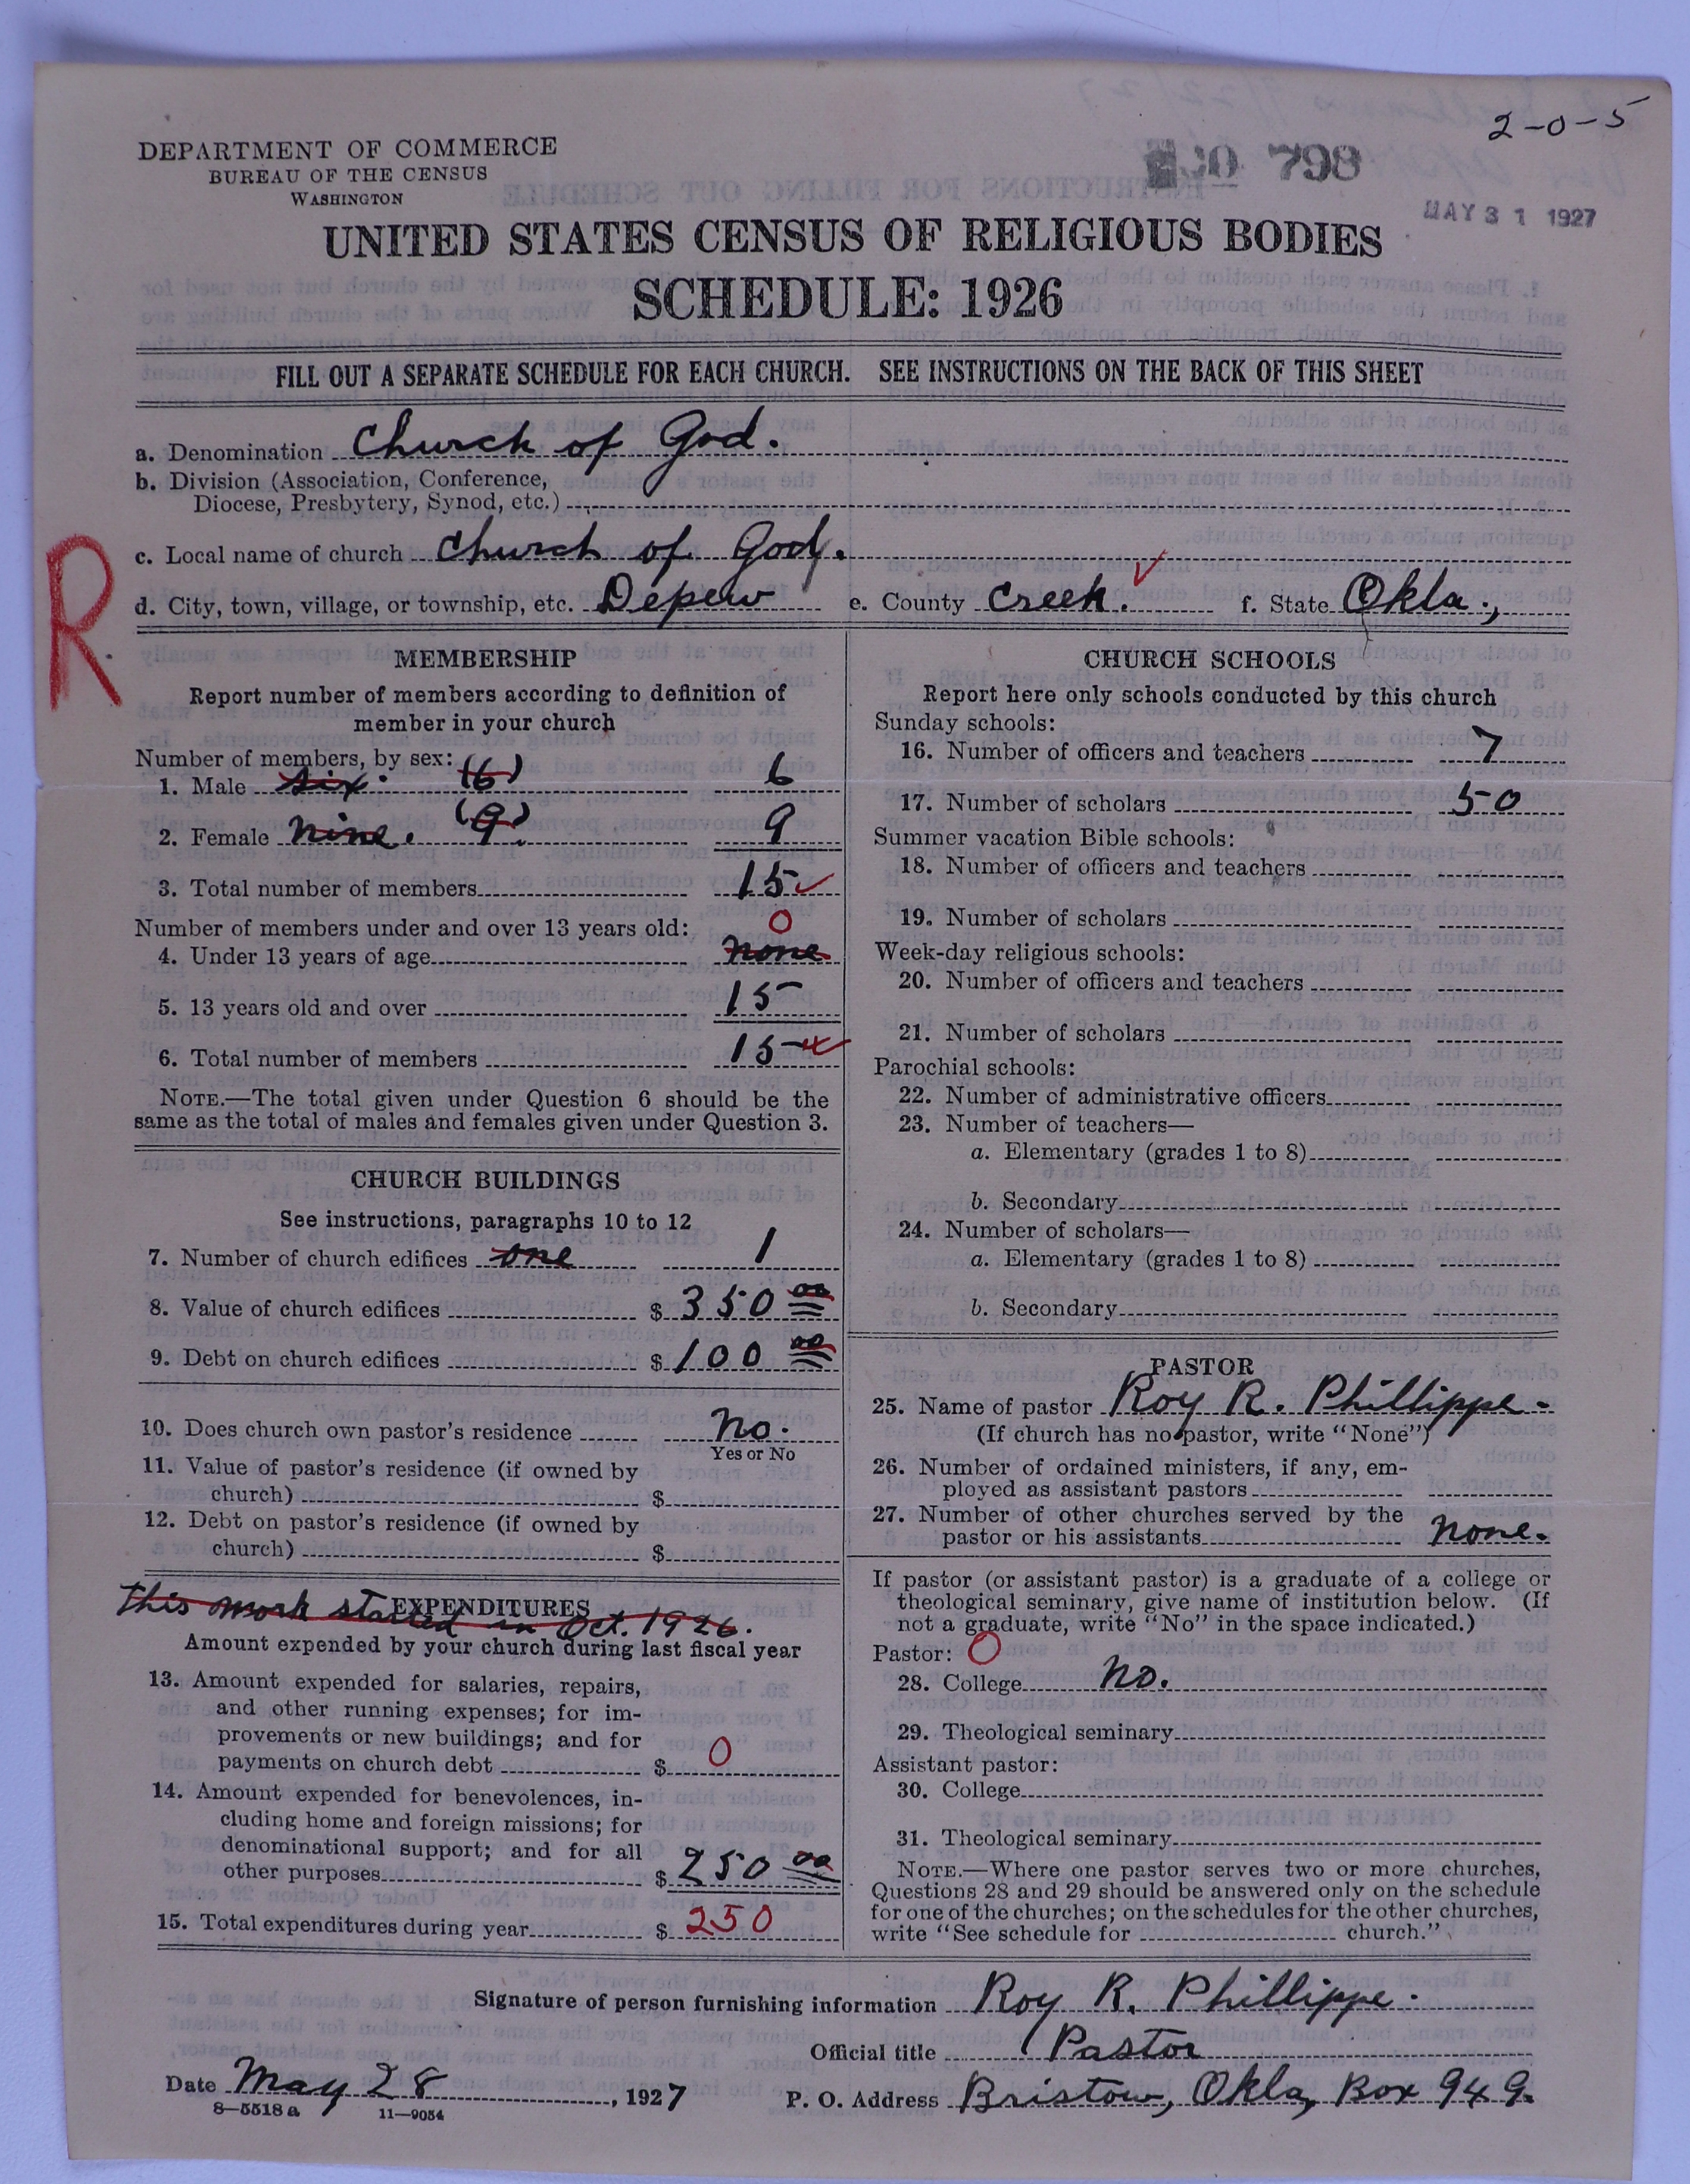 2-0-5
798
MAY 31 1927
DEPARTMENT OF COMMERCE
BUREAU OF THE CENSUS
WASHINGTON
UNITED STATES CENSUS OF RELIGIOUS BODIES
SCHEDULE: 1926
FILL OUT A SEPARATE SCHEDULE FOR EACH CHURCH. SEE INSTRUCTIONS ON THE BACK OF THIS SHEET
a. Denomination Church of God.
b. Division (Association, Conference,
Diocese, Presbytery, Synod, etc.)
R
c. Local name of church Church of God.
d. City, town, village, or township, etc. Depew e. County Creek. f. State Okla.,
MEMBERSHIP
Report number of members according to definition of
member in your church
Number of members, by sex:
1. Male six. (6) 6
2. Female nine. (9) 9
3. Total number of members 15
Number of members under and over 13 years old: 0
4. Under 13 years of age none
5. 13 years old and over 15
6. Total number of members 15
NOTE.—The total given under Question 6 should be the
same as the total of males and females given under Question 3.
CHURCH BUILDINGS
See instructions, paragraphs 10 to 12
7. Number of church edifices one 1
8. Value of church edifices $ 350 00
9. Debt on church edifices $ 100 00
10. Does church own pastor's residence No.
Yes or No
11. Value of pastor's residence (if owned by
church) $
12. Debt on pastor's residence (if owned by
church) $
This work started in Oct. 1926.
EXPENDITURES
Amount expended by your church during last fiscal year
13. Amount expended for salaries, repairs,
and other running expenses; for im-
provements or new buildings; and for
payments on church debt $ 0
14. Amount expended for benevolences, in-
cluding home and foreign missions; for
denominational support; and for all
other purposes $ 250 00
15. Total expenditures during year $ 250
CHURCH SCHOOLS
Report here only schools conducted by this church
Sunday schools:
16. Number of officers and teachers 7
17. Number of scholars 50
Summer vacation Bible schools:
18. Number of officers and teachers
19. Number of scholars
Week-day religious schools:
20. Number of officers and teachers
21. Number of scholars
Parochial schools:
22. Number of administrative officers
23. Number of teachers—
a. Elementary (grades 1 to 8)
b. Secondary
24. Number of scholars—
a. Elementary (grades 1 to 8)
b. Secondary
PASTOR
25. Name of pastor Roy R. Phillippe.
(If church has no pastor, write "None")
26. Number of ordained ministers, if any, em-
ployed as assistant pastors
27. Number of other churches served by the
pastor or his assistants none.
If pastor (or assistant pastor) is a graduate of a college or
theological seminary, give name of institution below. (If
not a graduate, write "No" in the space indicated.)
Pastor: 0
28. College No.
29. Theological seminary
Assistant pastor:
30. College
31. Theological seminary
NOTE.—Where one pastor serves two or more churches,
Questions 28 and 29 should be answered only on the schedule
for one of the churches; on the schedules for the other churches,
write "See schedule for church."
Signature of person furnishing information Roy R. Phillippe.
Official title Pastor
Date May 28, 1927 P. O. Address Bristow, Okla, Box 949.
8—5518 a 11—9054